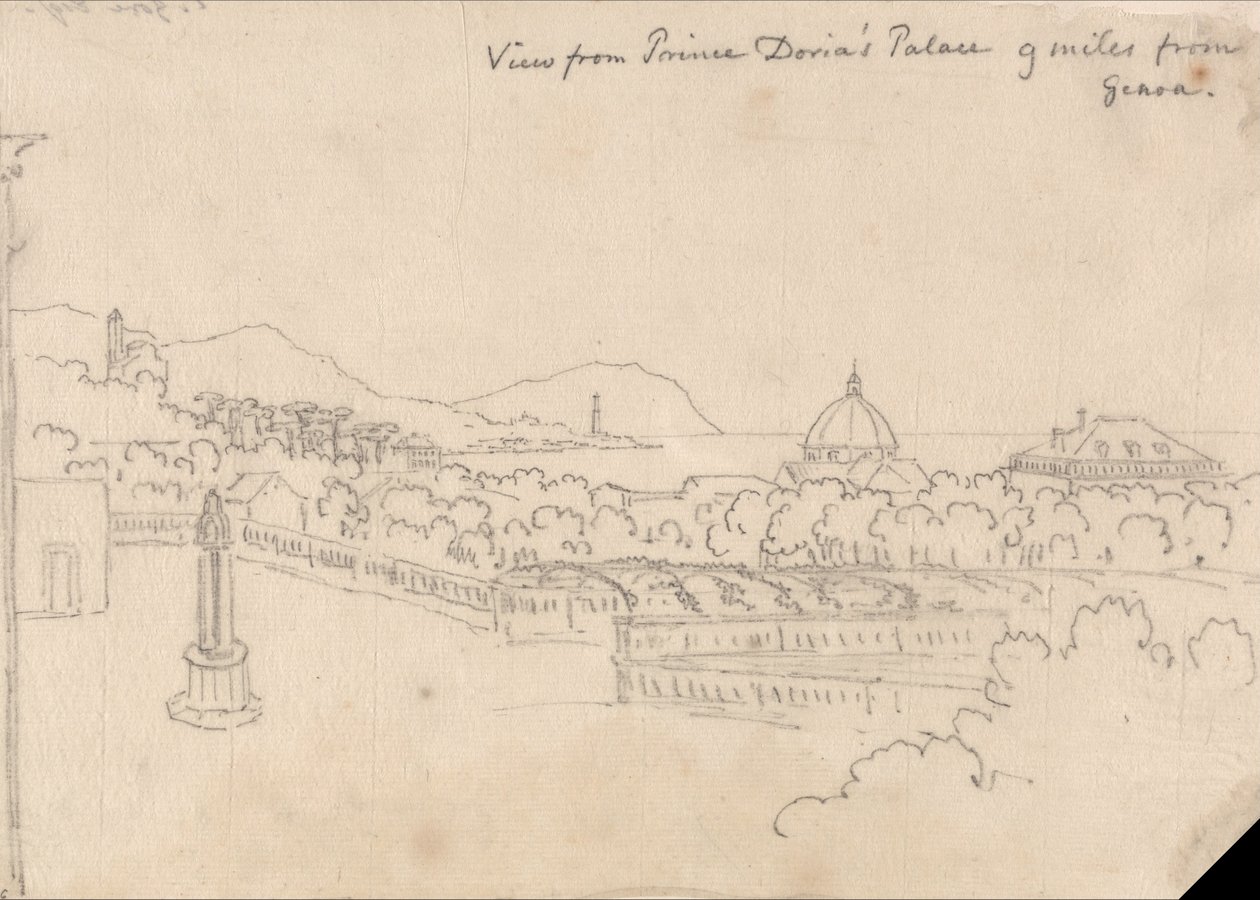 View from Prince Doria's Palace 9 miles from
Genoa.